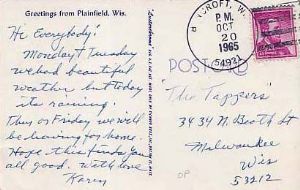 Greetings from Plainfield, Wis.
Hi Everybody!
Monday & Tuesday
we had beautiful
weather but today
its raining.
Thurs or Friday we will
be leaving for home.
Hope this finds you
all good. With love
Karen
CROFT, W
P.M.
OCT
20
1965
POSTCARD
"The Tappers"
3434 N. Booth St
Milwaukee
Wis
53212